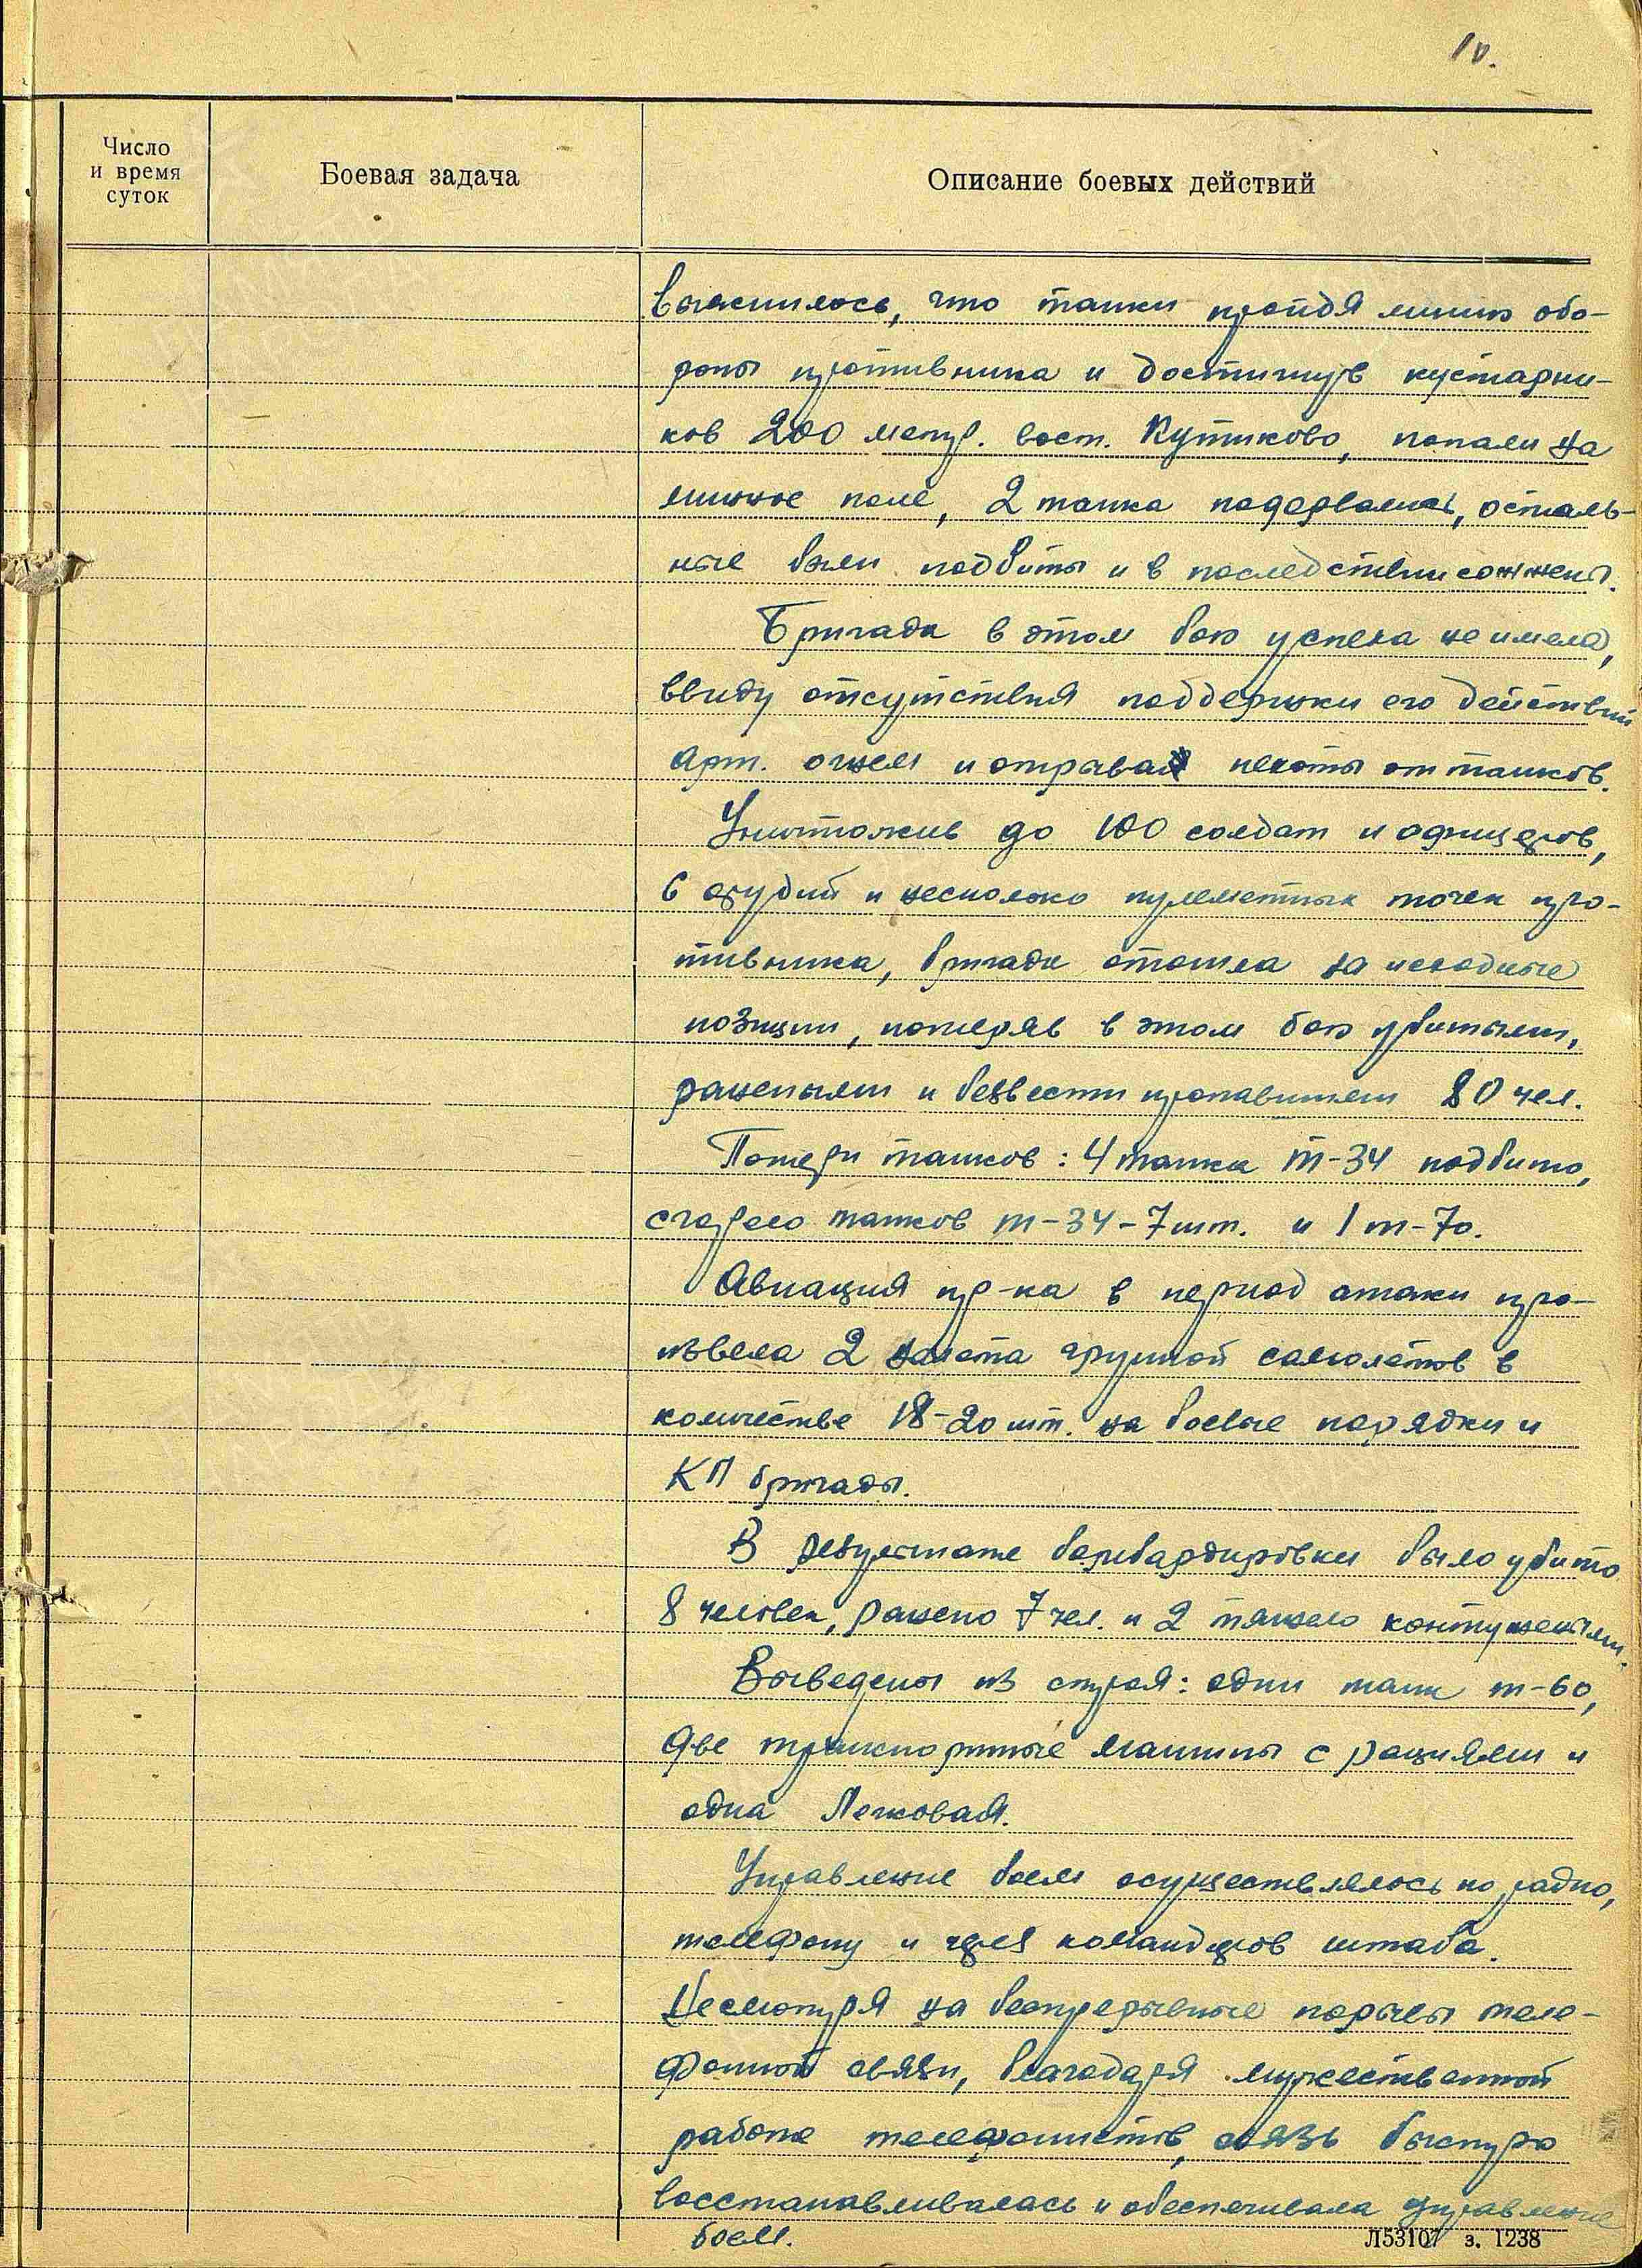 10.
Число
и время
суток
Боевая задача
Описание боевых действий
выяснилось, что танки пройдя линию обо-
роны противника и достигнув кустарни-
ков 200 метр. вост. Кутиково, попали на
минное поле, 2 танка подорвались, осталь-
ные были подбиты и в последствии сожжены.
Бригада в этом бою успеха не имела,
ввиду отсутствия поддержки его действий
арт. огнем и отрыва пехоты от танков.
Уничтожив до 100 солдат и офицеров,
6 орудий и несколько пулеметных точек про-
тивника, бригада отошла на исходные
позиции, потеряв в этом бою убитыми,
ранеными и безвести пропавшими 80 чел.
Потери танков: 4 танка Т-34 подбито,
сгорело танков т-34-7 шт. и 1 т-70.
Авиация пр-ка в период атаки про-
извела 2 налета группой самолетов в
количестве 18-20 шт. на боевые порядки и
КП бригады.
В результате бомбардировки было убито
8 человек, ранено 7 чел. и 2 тяжело контуженным.
Выведены из строя: один танк т-60,
две транспортные машины с рациями и
одна Легковая.
Управление боем осуществлялось по радио,
телефону и через командиров штаба.
Несмотря на беспрерывные порывы теле-
фонной связи, благодаря мужественной
работе телефонистов, связь быстро
восстанавливалась и обеспечивала управление
боем.
Л53107 з. 1238